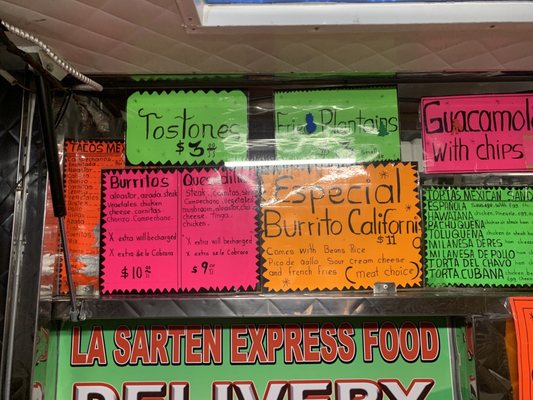 Tostones
$3
Fried Plantains
$3
Guacamole
with chips
TACOS MEXICAN
Burritos
alpastor, asada, steak
vegetales
chicken
cheese, carnitas
Chorizo, Campechano
X extra will becharged
X extra se le Cobrara
$10
Steak,
asada, carnitas
Campechano
vegetales,
chicken
cheese
Tinga
X extra will becharged
X extra se le Cobrara
$9
Especial
Burrito California
$11
Comes with Beans Rice
Pico de gallo, Sour cream cheese
and french Fries (meat choice)
TORTAS MEXICAN SAND
ESPAÑOLA
HAWAIANA
PACHUQUEÑA
TOLUQUEÑA
MILANESA DE RES
MILANESA DE POLLO
TORTA DEL CHAVO
TORTA CUBANA
LA SARTEN EXPRESS FOOD
DELIVERY